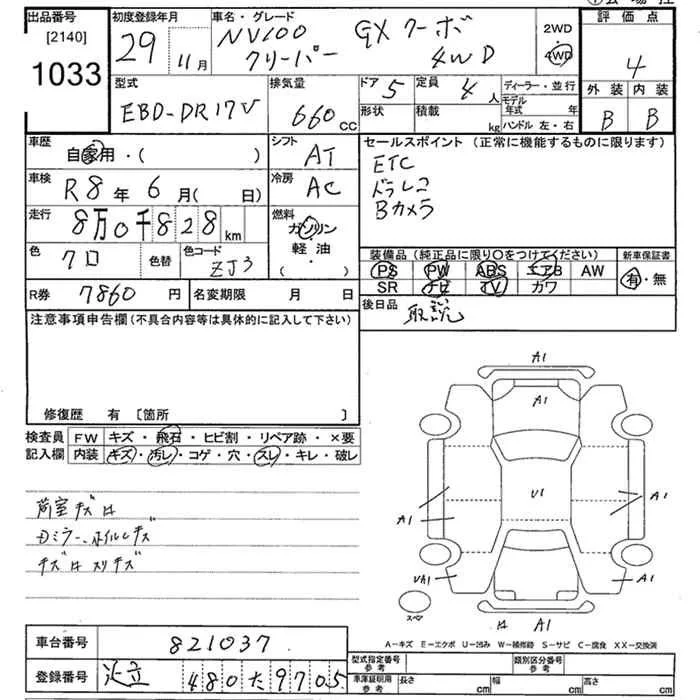 出品番号
[2140]
1033
初度登録年月
29 11月
車名・グレード
NV100 GXターボ
クリーパー 4WD
2WD
4WD
評価点
4
外装 内装
B B
型式
EBD-DR17V
排気量
660 CC
ドア 5
定員 4 人
形状
積載 kg
ディーラー・並行
モデル年式 年
ハンドル 左・右
車歴
自家用・( )
シフト
AT
セールスポイント (正常に機能するものに限ります)
ETC
ドラレコ
Bカメラ
車検
R8年 6月( 日)
冷房
AC
走行
8万0千828km
燃料
ガソリン
軽・油
・( )
色
クロ
色替
色コード
ZJ3
装備品 (純正品に限り○をつけてください)
PS PW ABS エアB AW
SR ナビ TV カワ
新車保証書
有・無
R券 7860 円
名変期限 月 日
後日品
取説
注意事項申告欄 (不具合内容等は具体的に記入して下さい)
修復歴 有 [箇所 ]
検査員
記入欄
FW キズ・飛石・ヒビ割・リペア跡・×要
内装 キズ・汚レ・コゲ・穴・スレ・キレ・破レ
荷室キズハ
Dミラー、ホイルキズ
キズハスリキズ
A1
A1
U1
A1
A1
UA1
A1
スペア
ハ A1
A-キズ E-エクボ U-凹み W-補修跡 S-サビ C-腐食 XX-交換済
車台番号
821037
登録番号
足立 480た9705
型式指定番号
参考
類別区分番号
参考
車庫証明用
参考
長さ cm
幅 cm
高さ cm